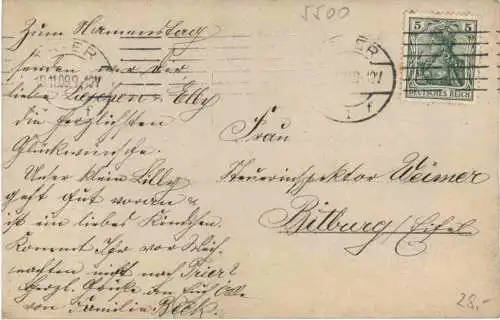 5500
Zum Namenstag
senden wir dir
liebe Lieschen & Elly
die herzlichsten
Glückwünsche.
Unser klein Lilly
geht gut voran &
ist ein liebes Kindchen.
Kommt Ihr vor Weih-
nachten nicht nach Trier?
Herzl. Grüße an Euch Alle
von Familie Beck.
5 5
DEUTSCHES REICH
Frau
Steuerinspektor Weimer
Bitburg / Eifel
28.-